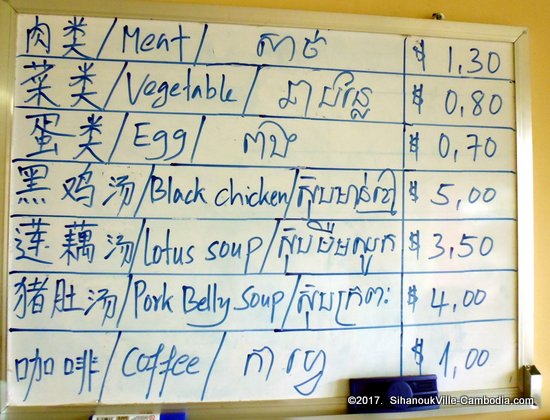 肉类/Meat/ សាច់ $ 1,30
菜类/Vegetable/ $ 0,80
蛋类/Egg/ $ 0,70
黑鸡汤/Black chicken/ស៊ុបមាន់ខ្មៅ $ 5,00
莲藕汤/Lotus soup/ស៊ុបមើមឈូក $ 3,50
猪肚汤/Pork Belly soup/ស៊ុបក្រពះ $ 4,00
咖啡/Coffee/ កាហ្វេ $ 1,00
©2017. SihanoukVille-Cambodia.com